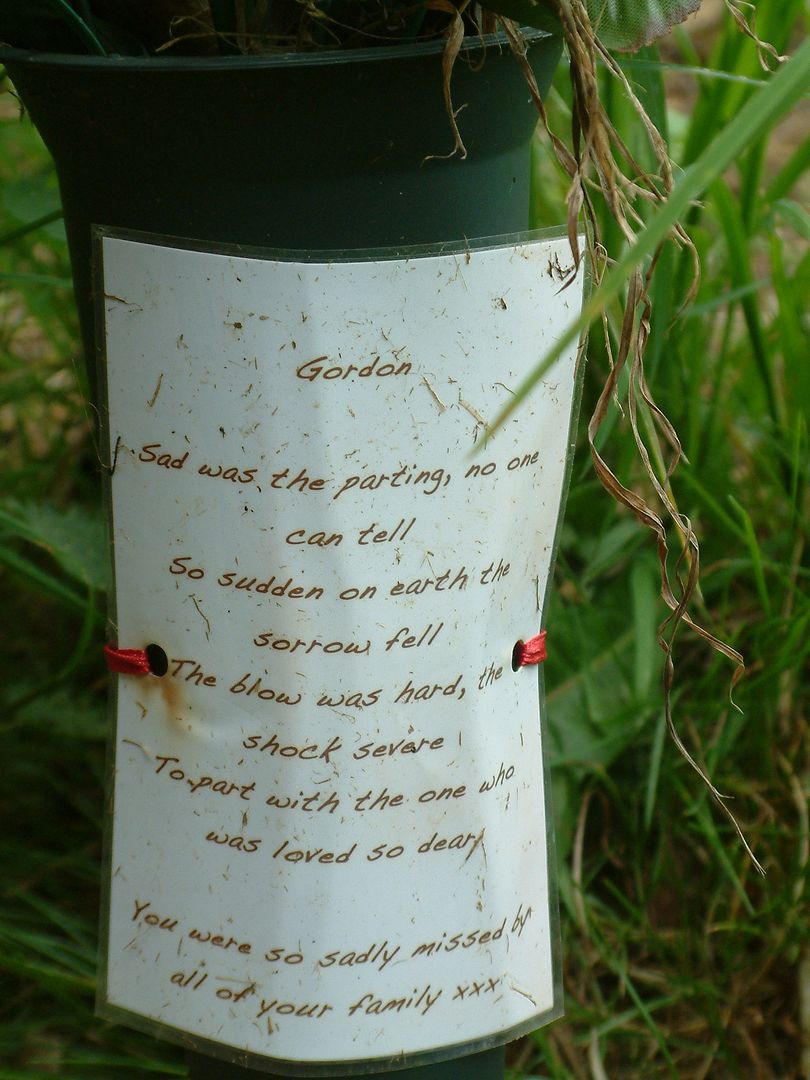 Gordon
Sad was the parting, no one
can tell
So sudden on earth the
sorrow fell
The blow was hard, the
shock severe
To part with the one who
was loved so dear
You were so sadly missed by
all of your family xxx